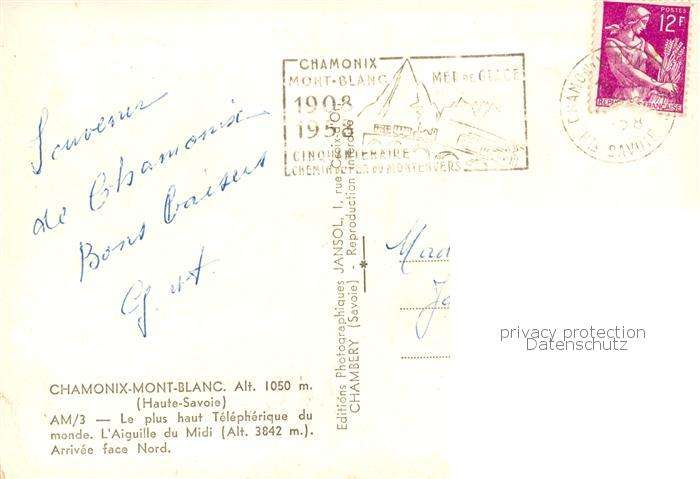 CHAMONIX
MONT-BLANC MER DE GLACE
1908
1958
CINQUANTENAIRE
CHEMIN DE FER DU MONTENVERS
POSTES
12F
REPUBLIQUE FRANÇAISE
Souvenir
de Chamonix
Bons Baisers
Mad
Editions Photographiques JANSOL, 1, rue Croix-d'Or
CHAMBERY (Savoie) - Reproduction interdite
privacy protection
Datenschutz
CHAMONIX-MONT-BLANC. Alt. 1050 m.
(Haute-Savoie)
AM/3 — Le plus haut Téléphérique du
monde. L'Aiguille du Midi (Alt. 3842 m.).
Arrivée face Nord.